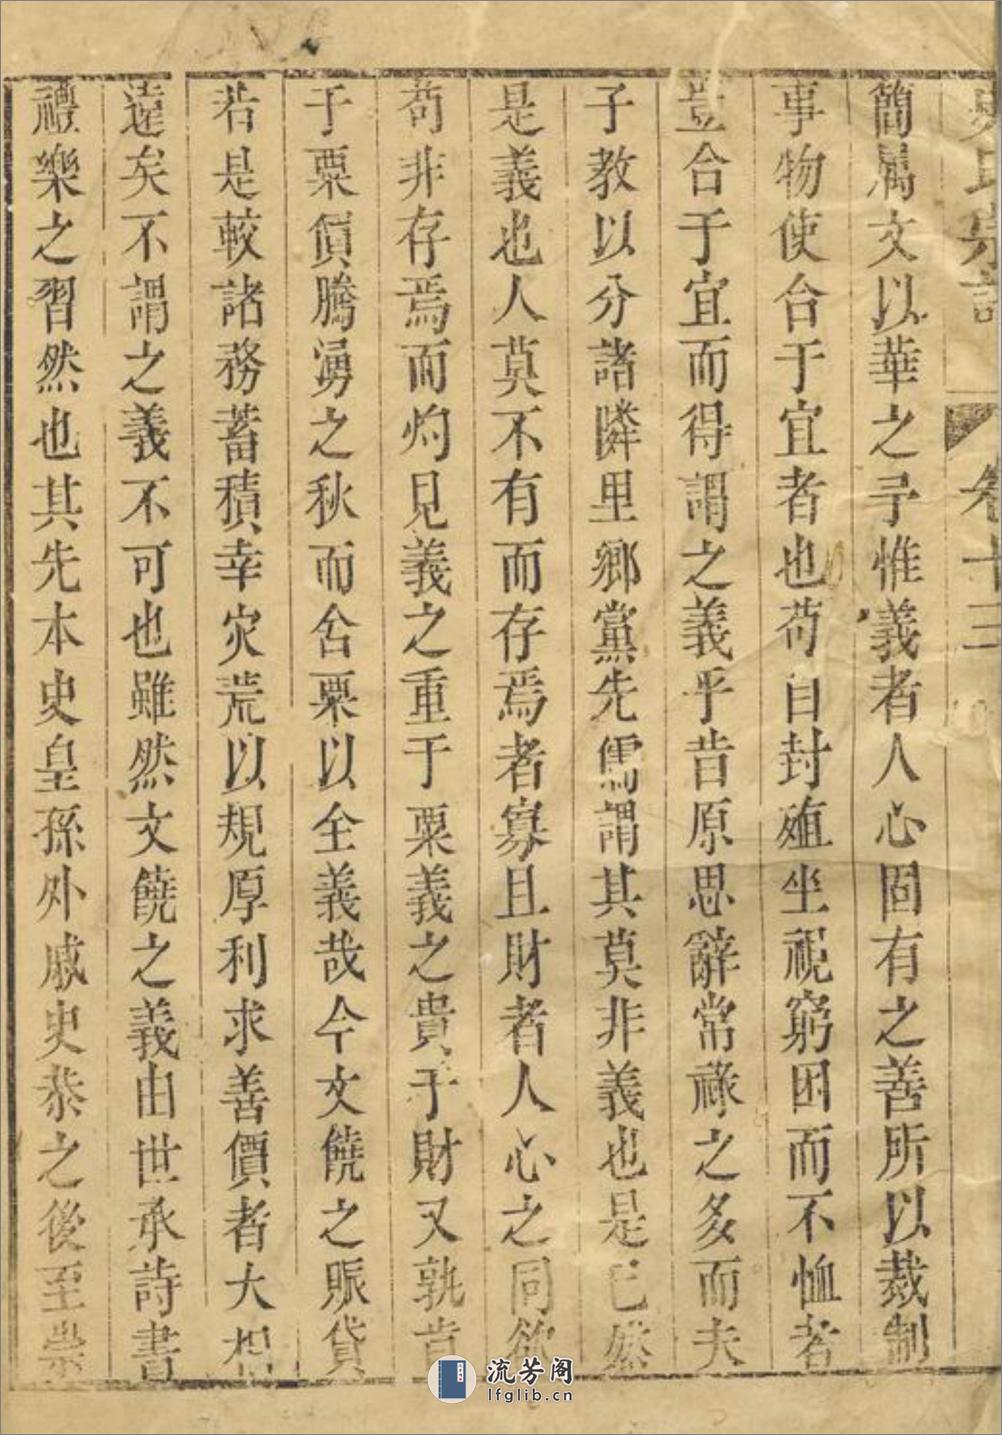 史氏宗譜 卷十三
簡属文以華之予惟義者人心固有之善所以裁制
事物使合于宜者也苟自封殖坐視窮困而不恤者
豈合于宜而得謂之義乎昔原思辭常祿之多而夫
子教以分諸隣里鄉黨先儒謂其莫非義也是已然
是義也人莫不有而存焉者寡且財者人心之同欲
苟非存焉而灼見義之重于粟義之貴于財又孰肯
于粟價騰湧之秋而舍粟以全義哉今文饒之賑貸
若是較諸務蓄積幸灾荒以規厚利求善價者大相
遠矣不謂之義不可也雖然文饒之義由世承詩書
禮樂之習然也其先本史皇孫外戚史恭之後至崇
流芳阁
lfglib.cn